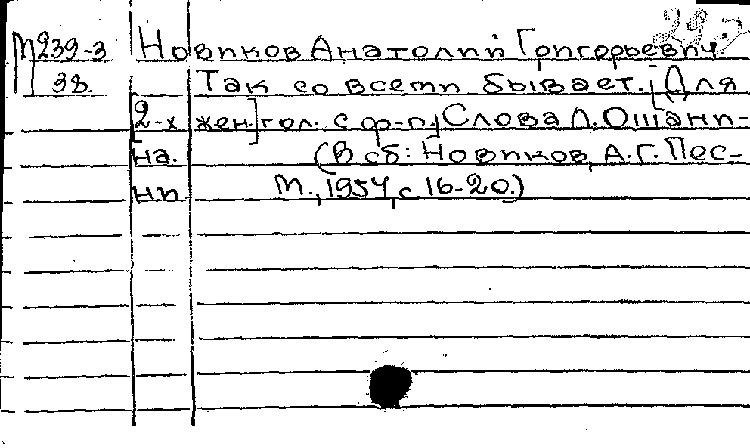 М239-3 Новиков Анатолий Григорьевич
38. Так со всеми бывает. [Для
2-х жен.] гол. с ф-п.] Слова Л. Ошани-
на. (В сб: Новиков, А.Г. Пес-
ни М., 1954, с 16-20.)